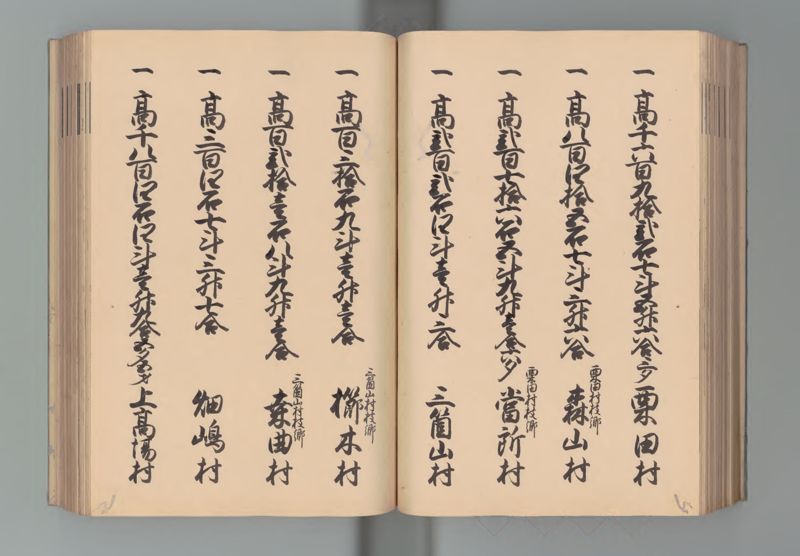 一 高千六百九拾弐石七斗五升六合三夕 栗田村
一 高八百四拾五石七斗三升六合 栗田村枝郷 森山村
一 高弐百七拾六石五斗九升壱合六夕 栗田村枝郷 當所村
一 高弐百弐石四斗壱升三合 三箇山村
一 高百三拾石九斗壱升壱合 三箇山村枝郷 櫛木村
一 高百弐拾壱石八斗九升壱合 三箇山村枝郷 桑曲村
一 高三百四石七斗三升七合 畑嶋村
一 高千八百四石四斗壱升 上高場村